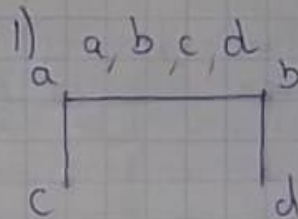 1) a, b, c, d
a b
c d